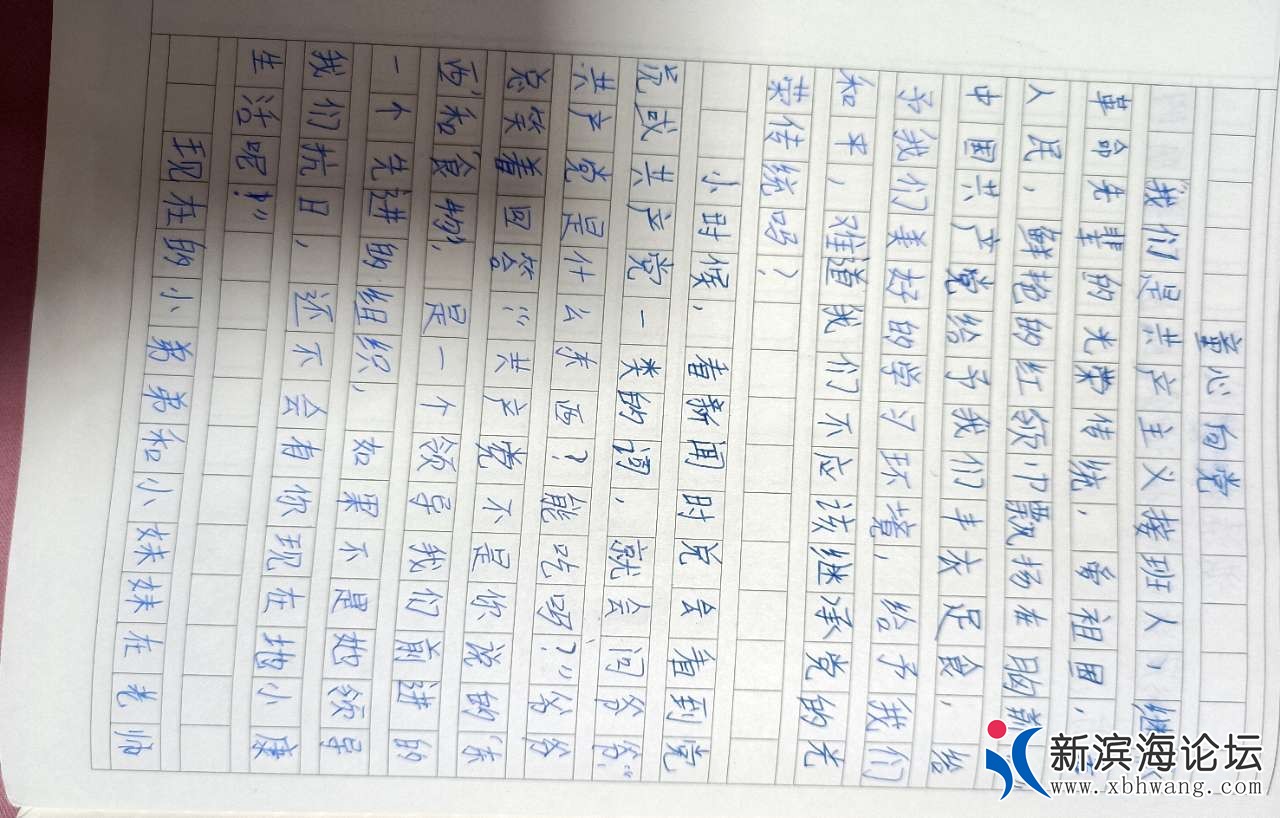 童心向党
我们是共产主义接班人,继承
革命先辈的光荣传统,爱祖国,
人民,鲜艳的红领巾飘扬在胸前
中国共产党给予我们丰衣足食,给
予我们美好的学习环境,给予我们
和平,难道我们不应该继承党的光
荣传统吗?
小时候,看新闻时总会看到党
员或共产党一类的词,就会问爷爷:“
共产党是什么东西?能吃吗?”爷爷
总笑着回答:“共产党不是你说的‘东
西’和‘食物’,是一个领导我们前进的
一个先进的组织,如果不是她领导
我们抗日,还不会有你现在地小康
生活呢!”
现在的小弟弟和小妹妹在老师
新滨海论坛
www.xbhwang.com